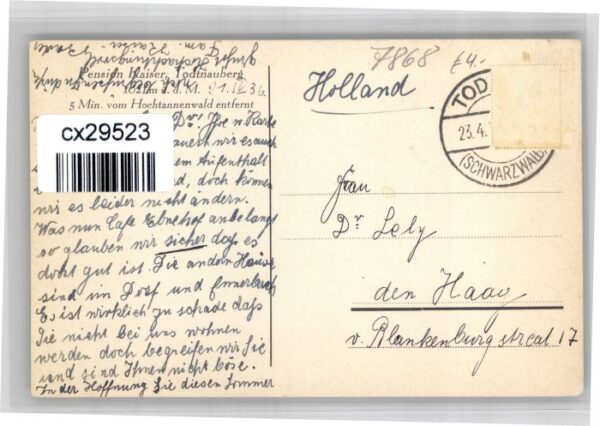 Pension Kaiser, Todtnauberg
1021 m ü. d. M. 21. IV 36
5 Min. vom Hochtannenwald entfernt
cx29523
Dr! Ihre w. Karte
wir es auch
em Aufenthalt
d, doch können
wir es leider nicht ändern.
Was nun Cafe Ebnehof anbelangt
so glauben wir sicher dass es
dort gut ist. Die andern Häuser
sind im Dorf und
Es ist wirklich zu schade daß
Sie nicht bei uns wohnen
werden doch begreifen wir Sie
und sind Ihnen nicht böse.
In der Hoffnung Sie diesen Sommer
7868 £4.-
Holland
TOD
23.4.
(SCHWARZWALD)
Frau
Dr. Lely
den Haag
v. Blankenburgstreat 17